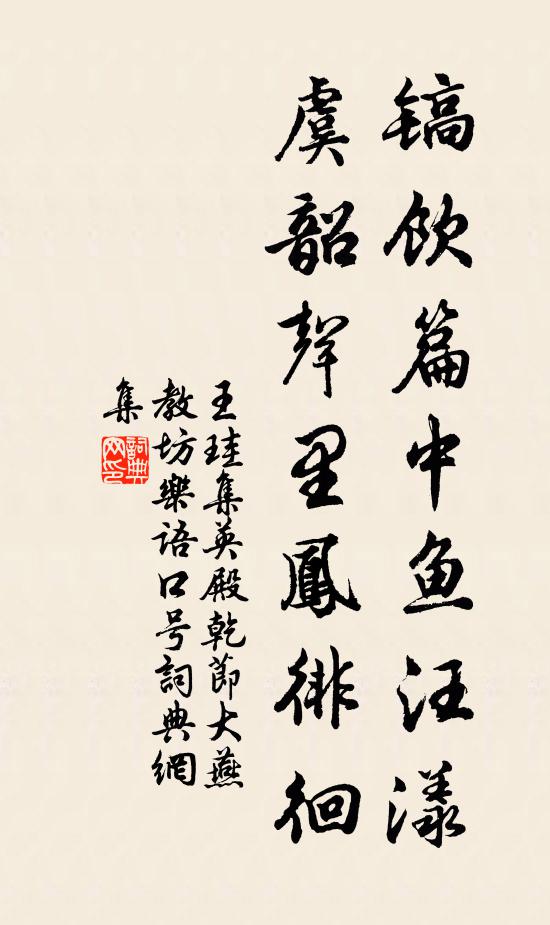 镐饮篇中鱼汪漾
虞韶聲里鳳徘徊
王珪集英殿乾節大燕
教坊樂语口号詞典網
集
詞典
网印